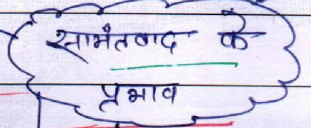 सामंतवाद के
प्रभाव